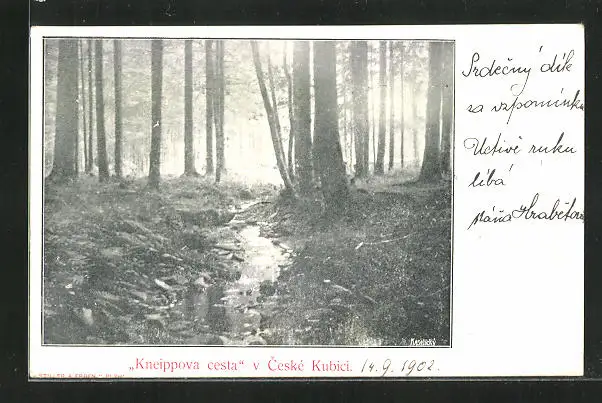 Srdečný dík
za vzpomínku
Uctivě ruku
líbá
Káňa Hrabětova
Maselický
„Kneippova cesta“ v České Kubici. 14.9.1902.